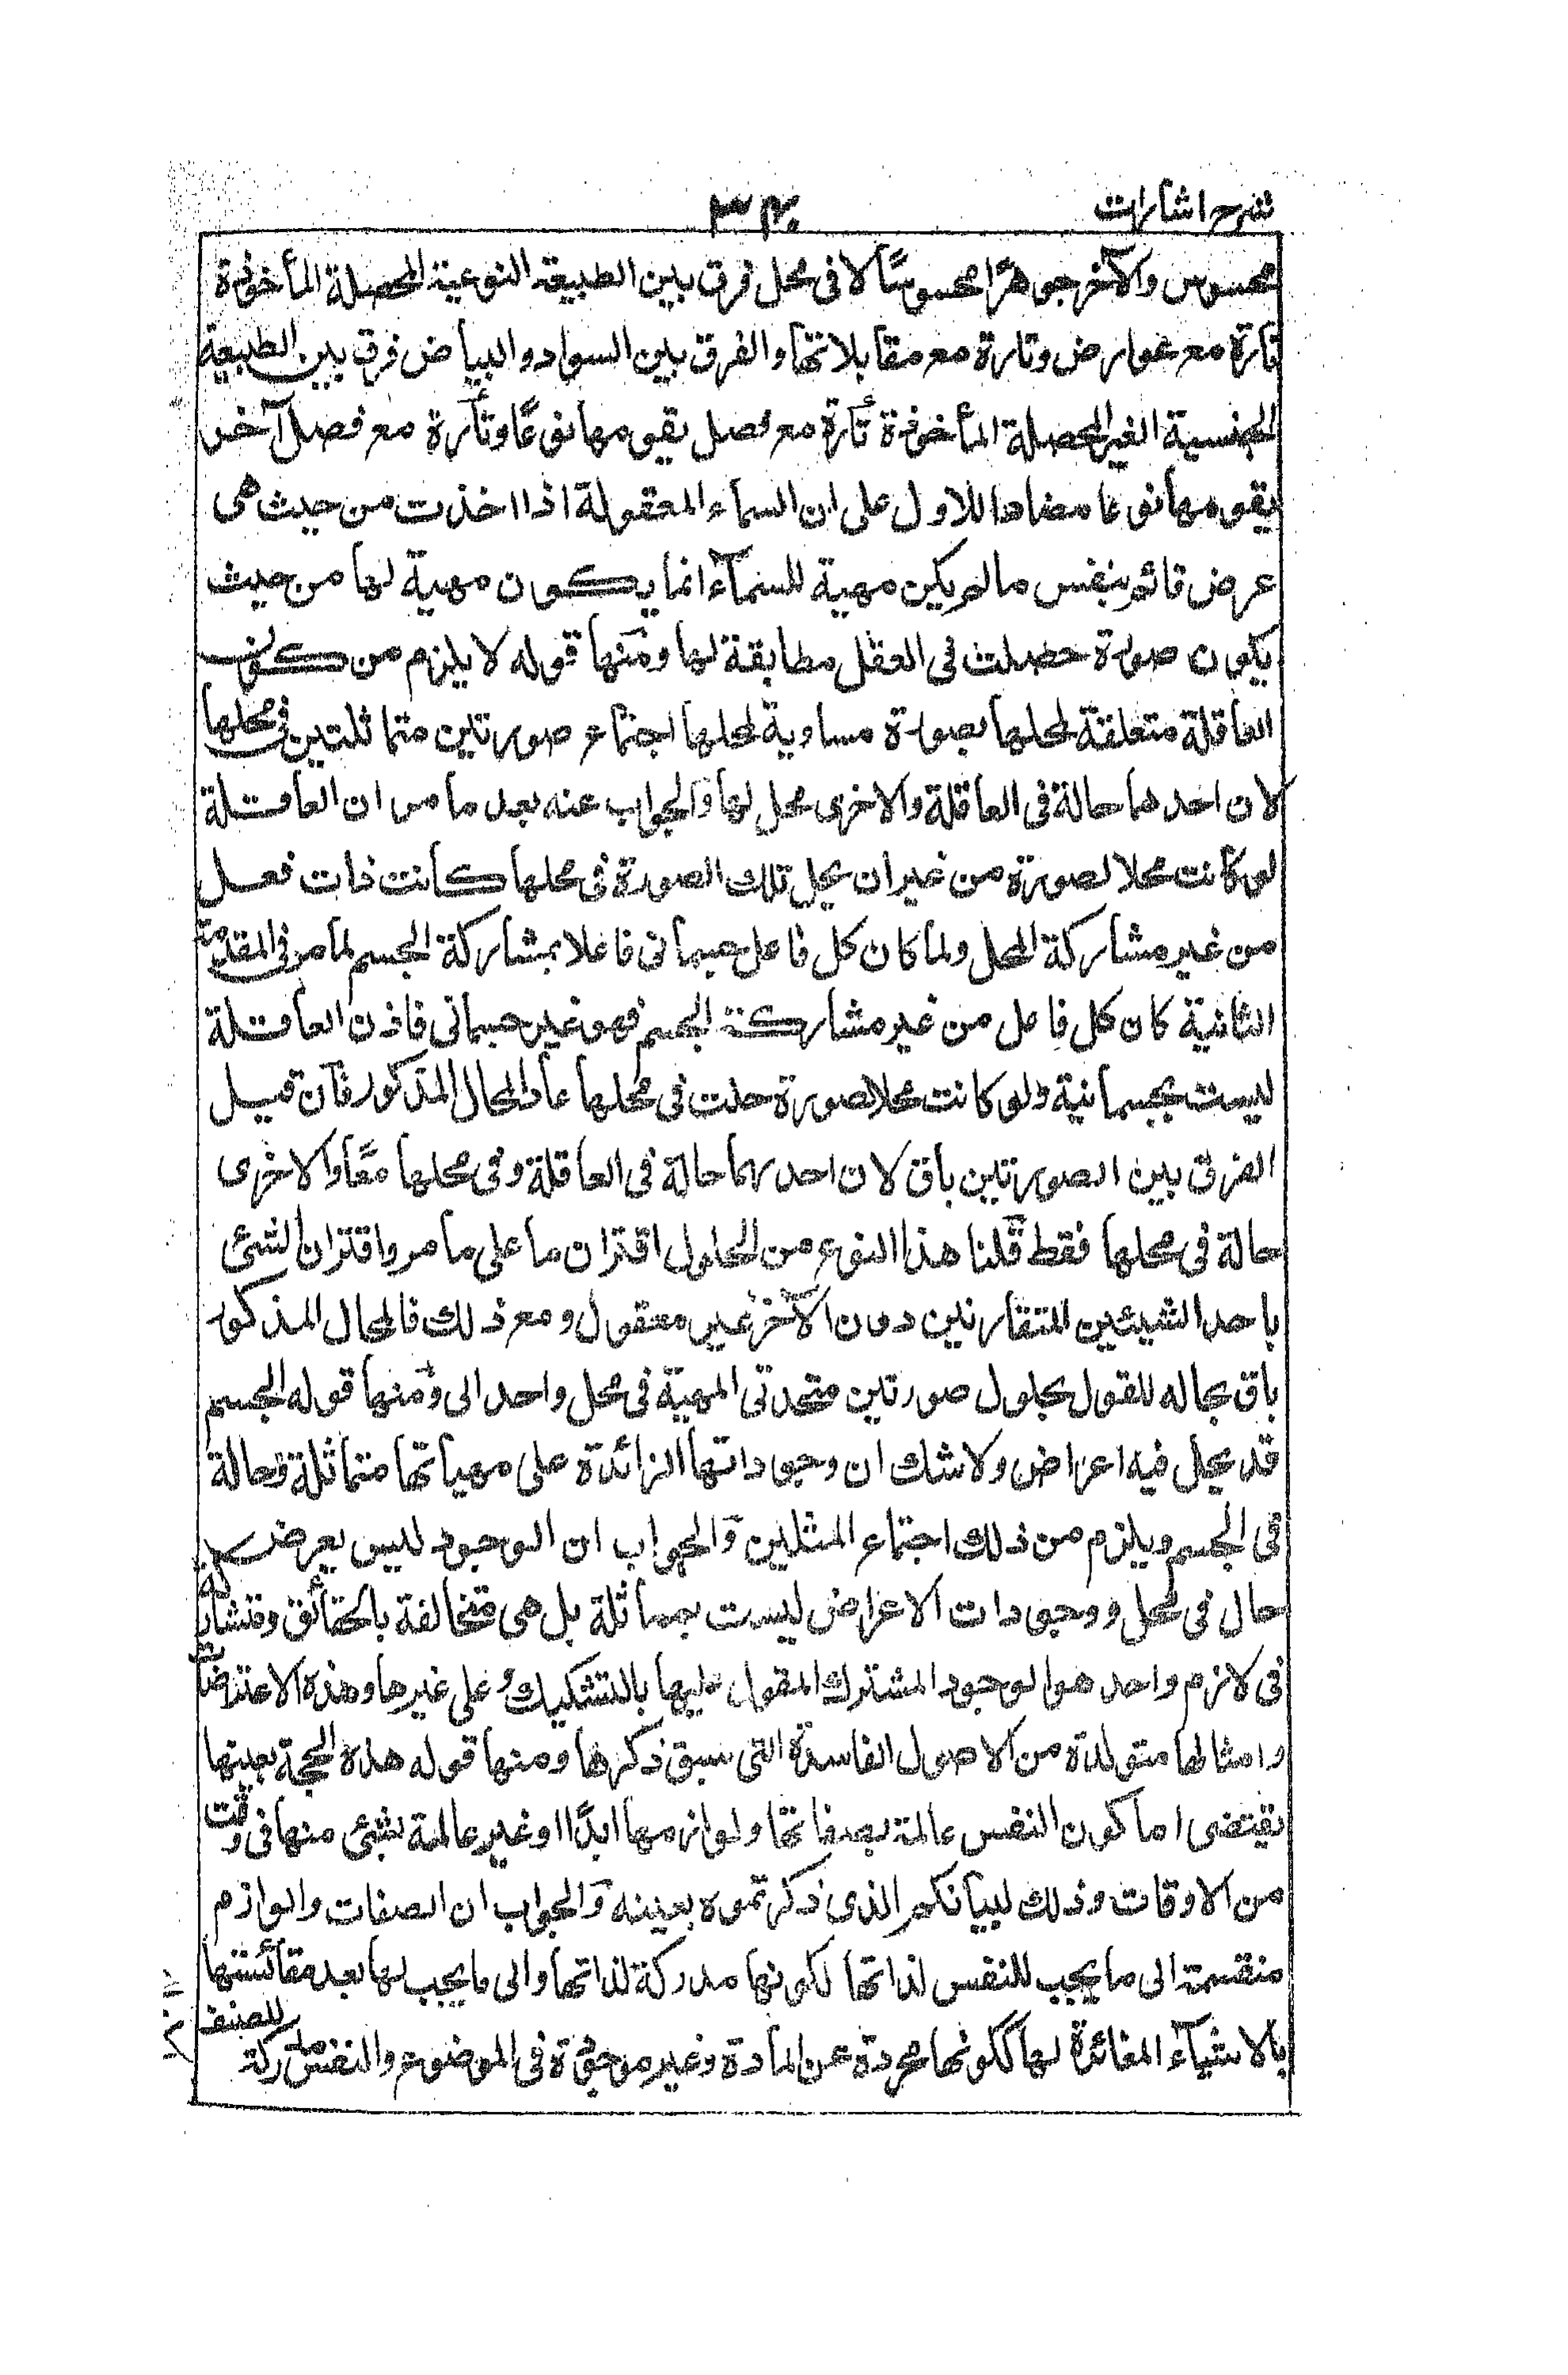 شرح اشارات
محسوس والآخر جوهرًا محسوسًا لا فى محل فرق بين الطبيعة النوعية المحصلة المأخوذة
تارة مع عوارض وتارة مع مقابلاتها والفرق بين السواد والبياض فرق بين الطبيعة
الجنسية الغير المحصلة المأخوذة تارة مع فصل يقومها نوعًا وتارة مع فصل آخر
يقومها نوعا مضادا للاول على ان السماء المعقولة اذا اخذت من حيث هى
عرض قائم بنفس ما لم يكن مهية للسمآء انما يكون مهية لها من حيث
يكون صورة حصلت فى العقل مطابقة لها ومنها قوله لا يلزم من كون
العاقلة متعلقة لمحلها بصورة مساوية لمحلها اجتماع صورتين متماثلتين فى محلها
لان احدهما حالة فى العاقلة والاخرى محل لها والجواب عنه بعد ما مر ان العاقلة
لو كانت محلا لصورة من غير ان يحل تلك الصورة فى محلها كانت ذات فعل
من غير مشاركة المحل ولما كان كل فاعل جسمانى فاعلا بمشاركة الجسم لما مر فى المقدمة
الثانية كان كل فاعل من غير مشاركة الجسم فهو غير جسمانى فاذن العاقلة
ليست بجسمانية ولو كانت محلا لصورة حلت فى محلها عاد المحال المذكور فان قيل
الفرق بين الصورتين باق لان احدهما حالة فى العاقلة وفى محلها معًا والاخرى
حالة فى محلها فقط قلنا هذا النوع من الحلول اقتران ما على ما مر واقتران الشئ
باحد الشيئين المتقارنين دون الآخر غير معقول ومع ذلك فالمحال المذكور
باق بحاله للقول بحلول صورتين متحدتى المهية فى محل واحد الى ومنها قوله الجسم
قد يحل فيه اعراض ولا شك ان وجوداتها الزائدة على مهياتها متماثلة وحالة
فى الجسم ويلزم من ذلك اجتماع المثلين والجواب ان الوجود ليس بعرض
حال فى المحل ووجودات الاعراض ليست بمماثلة بل هى متخالفة بالحقائق ومتشاركة
فى لازم واحد هو الوجود المشترك المقول عليها بالتشكيك وعلى غيرها وهذه الاعتراضات
وامثالها متولدة من الاصول الفاسدة التى سبق ذكرها ومنها قوله هذه الحجة بعينها
يقتضى اما كون النفس عالمة بصفاتها ولوازمها ابدًا او غير عالمة بشئ منها فى وقت
من الاوقات وذلك لبيانكم الذى ذكرتموه بعينه والجواب ان الصفات واللوازم
منقسمة الى ما يجب للنفس لذاتها لكونها مدركة لذاتها والى ما يجب لها بعد مقائستها
بالاشيآء المغائرة لها ككونها مجردة عن المادة وغير موجودة فى الموضوع والنفس مدركة
للصنف